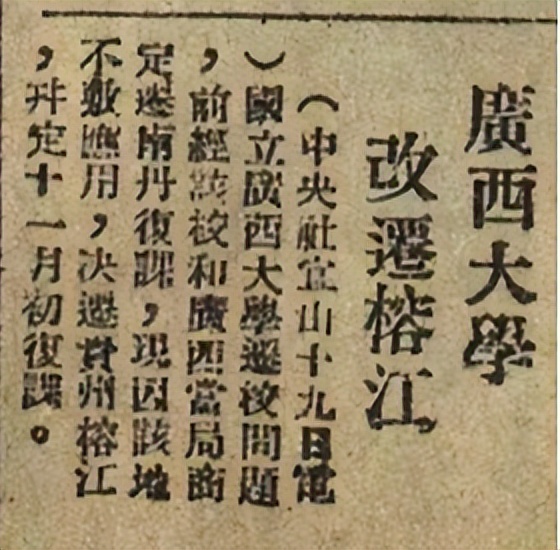 廣西大學
改遷榕江
（中央社宜山十九日電
）國立廣西大學遷校問題
，前經該校和廣西當局商
定遷南丹復課，現因該地
不敷應用，决遷貴州榕江
，幷定十一月初復課。